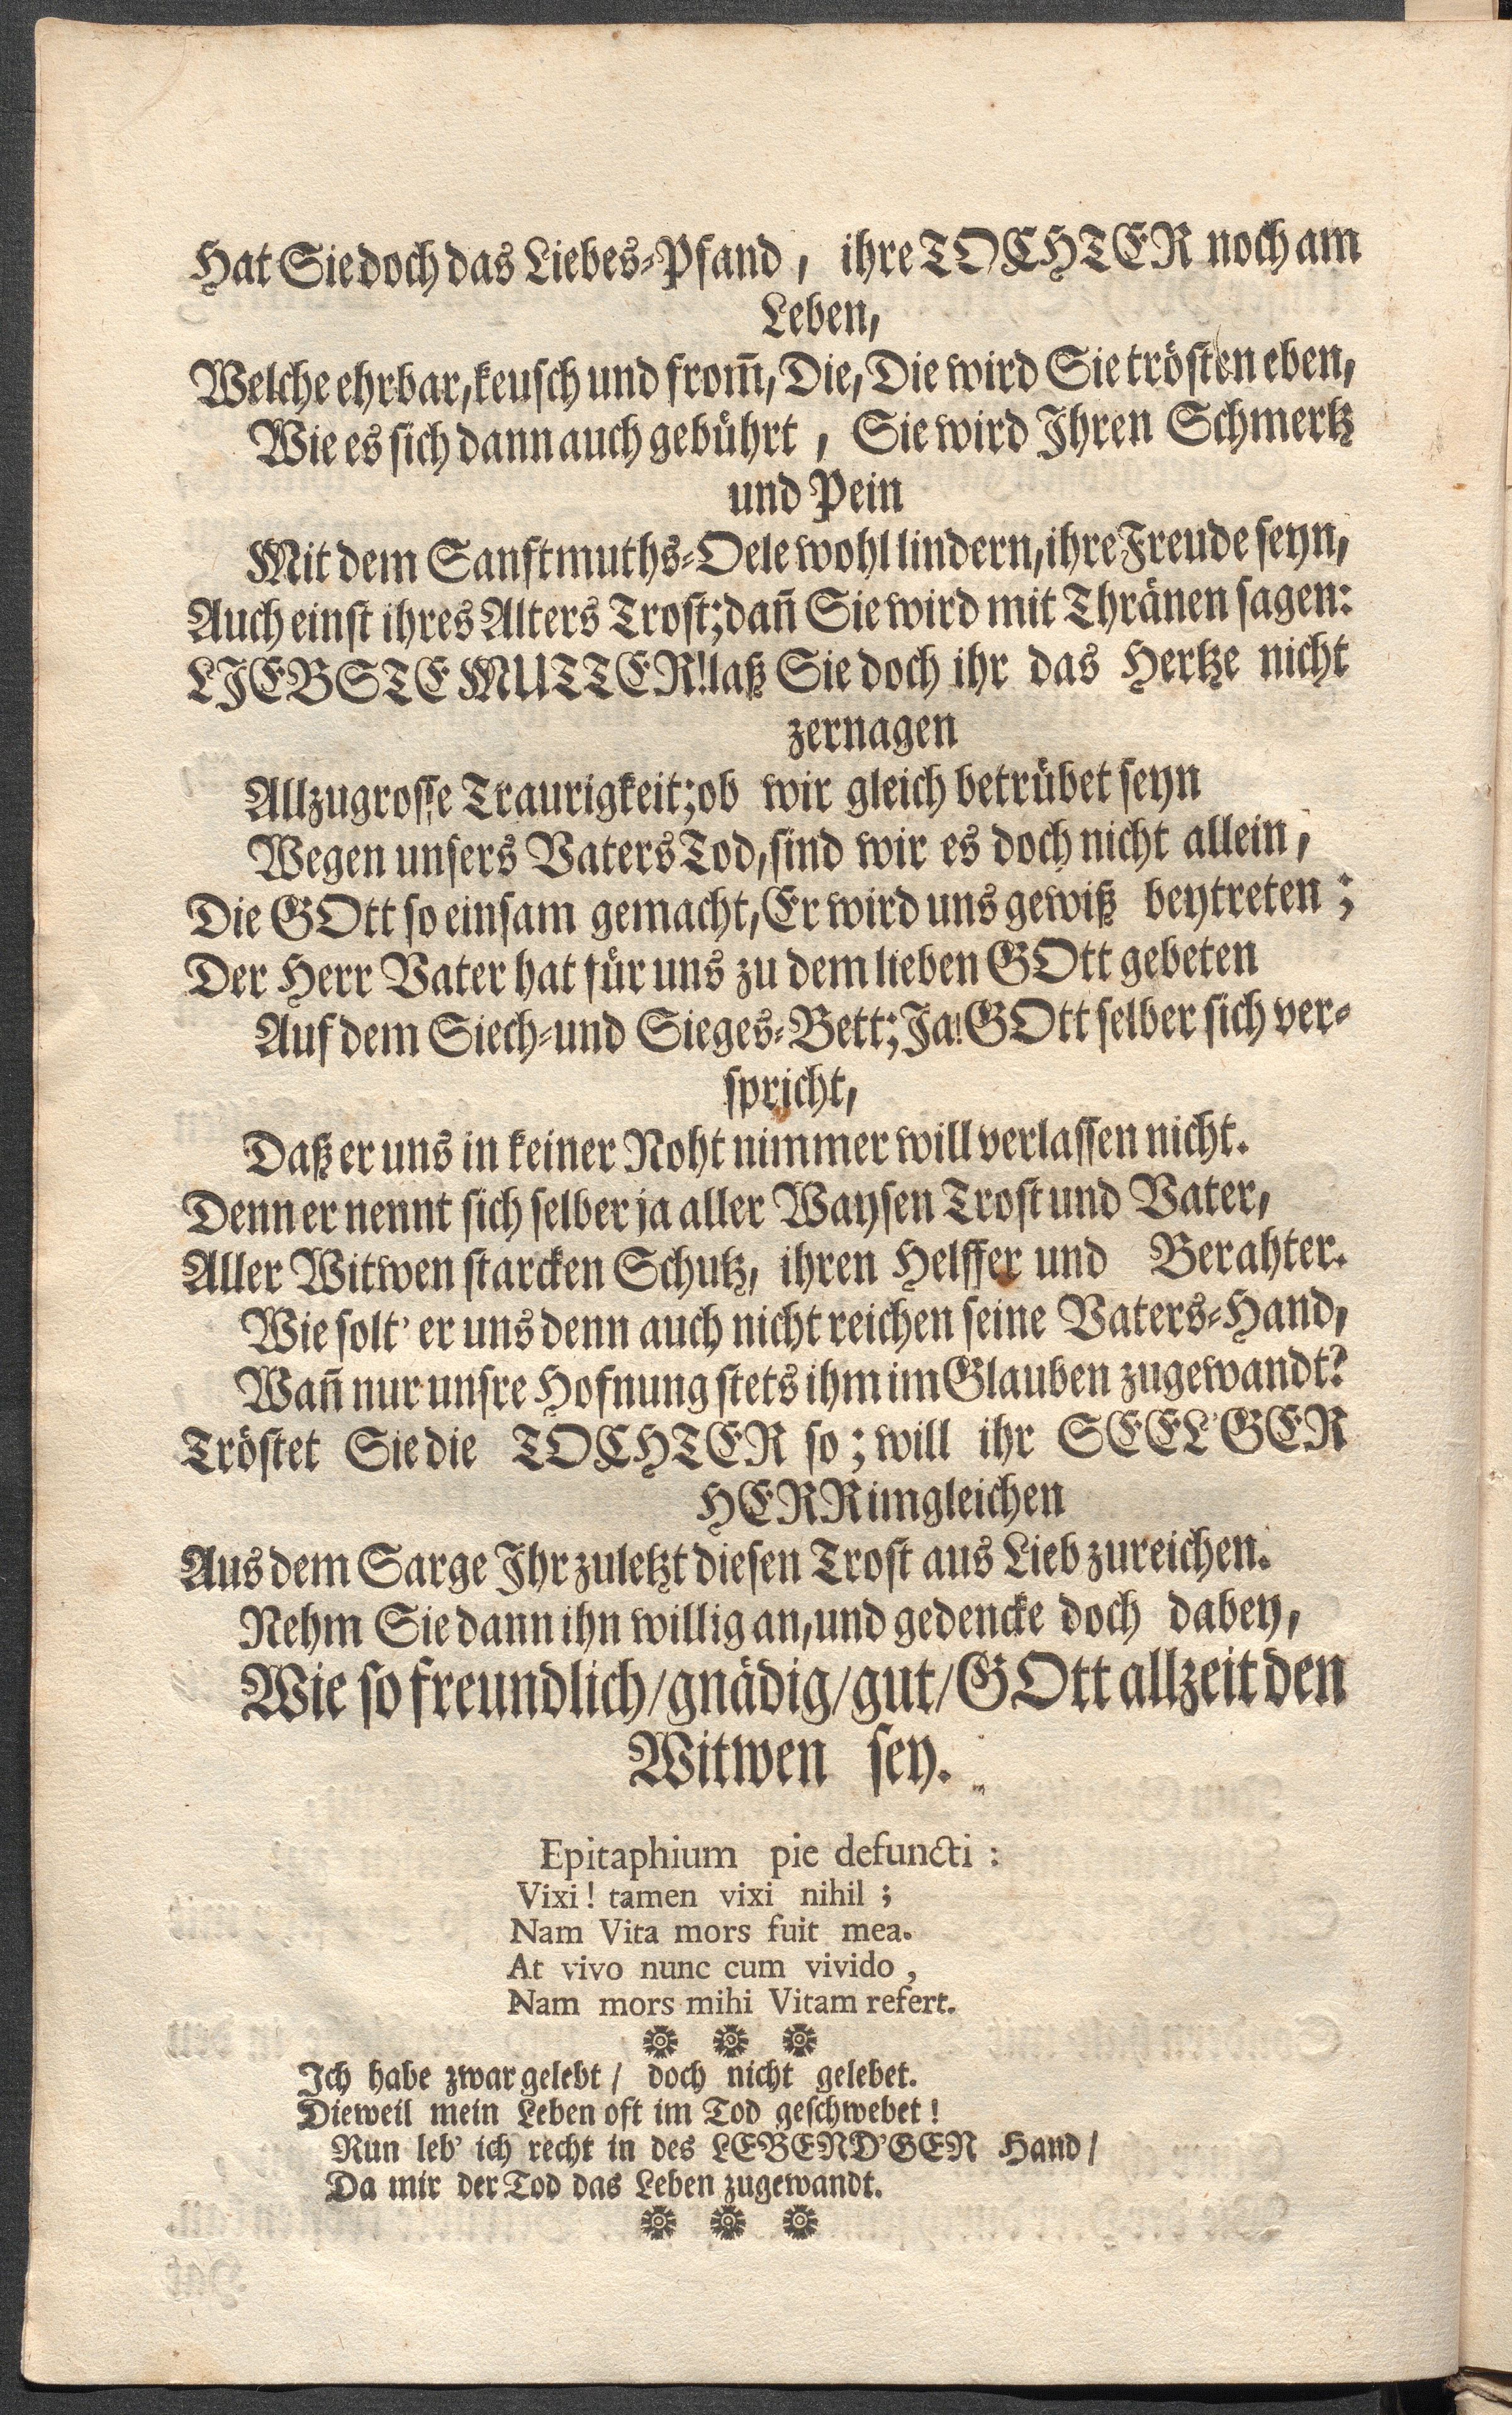 Hat Sie doch das Liebes-Pfand, ihre TOCHTER noch am
Leben,
Welche ehrbar, keusch und from̃, Die, Die wird Sie trösten eben,
Wie es sich dann auch gebührt, Sie wird Ihren Schmertz
und Pein
Mit dem Sanftmuths-Oele wohl lindern, ihre Freude seyn,
Auch einst ihres Alters Trost; dañ Sie wird mit Thränen sagen:
LIEBSTE MUTTER! laß Sie doch ihr das Hertze nicht
zernagen
Allzugrosse Traurigkeit; ob wir gleich betrübet seyn
Wegen unsers Vaters Tod, sind wir es doch nicht allein,
Die GOtt so einsam gemacht, Er wird uns gewiß beytreten;
Der Herr Vater hat für uns zu dem lieben GOtt gebeten
Auf dem Siech-und Sieges-Bett; Ja! GOtt selber sich ver-
spricht,
Daß er uns in keiner Noht nimmer will verlassen nicht.
Denn er nennt sich selber ja aller Waysen Trost und Vater,
Aller Witwen starcken Schutz, ihren Helffer und Berahter.
Wie solt' er uns denn auch nicht reichen seine Vaters-Hand,
Wañ nur unsre Hofnung stets ihm im Glauben zugewandt?
Tröstet Sie die TOCHTER so; will ihr SEEL'GER
HERR imgleichen
Aus dem Sarge Ihr zuletzt diesen Trost aus Lieb zureichen.
Nehm Sie dann ihn willig an, und gedencke doch dabey,
Wie so freundlich/gnädig/gut/GOtt allzeit den
Witwen sey.
Epitaphium pie defuncti:
Vixi! tamen vixi nihil;
Nam Vita mors fuit mea.
At vivo nunc cum vivido,
Nam mors mihi Vitam refert.
Ich habe zwar gelebt/ doch nicht gelebet.
Dieweil mein Leben oft im Tod geschwebet!
Nun leb' ich recht in des LEBEND'GEN Hand/
Da mir der Tod das Leben zugewandt.